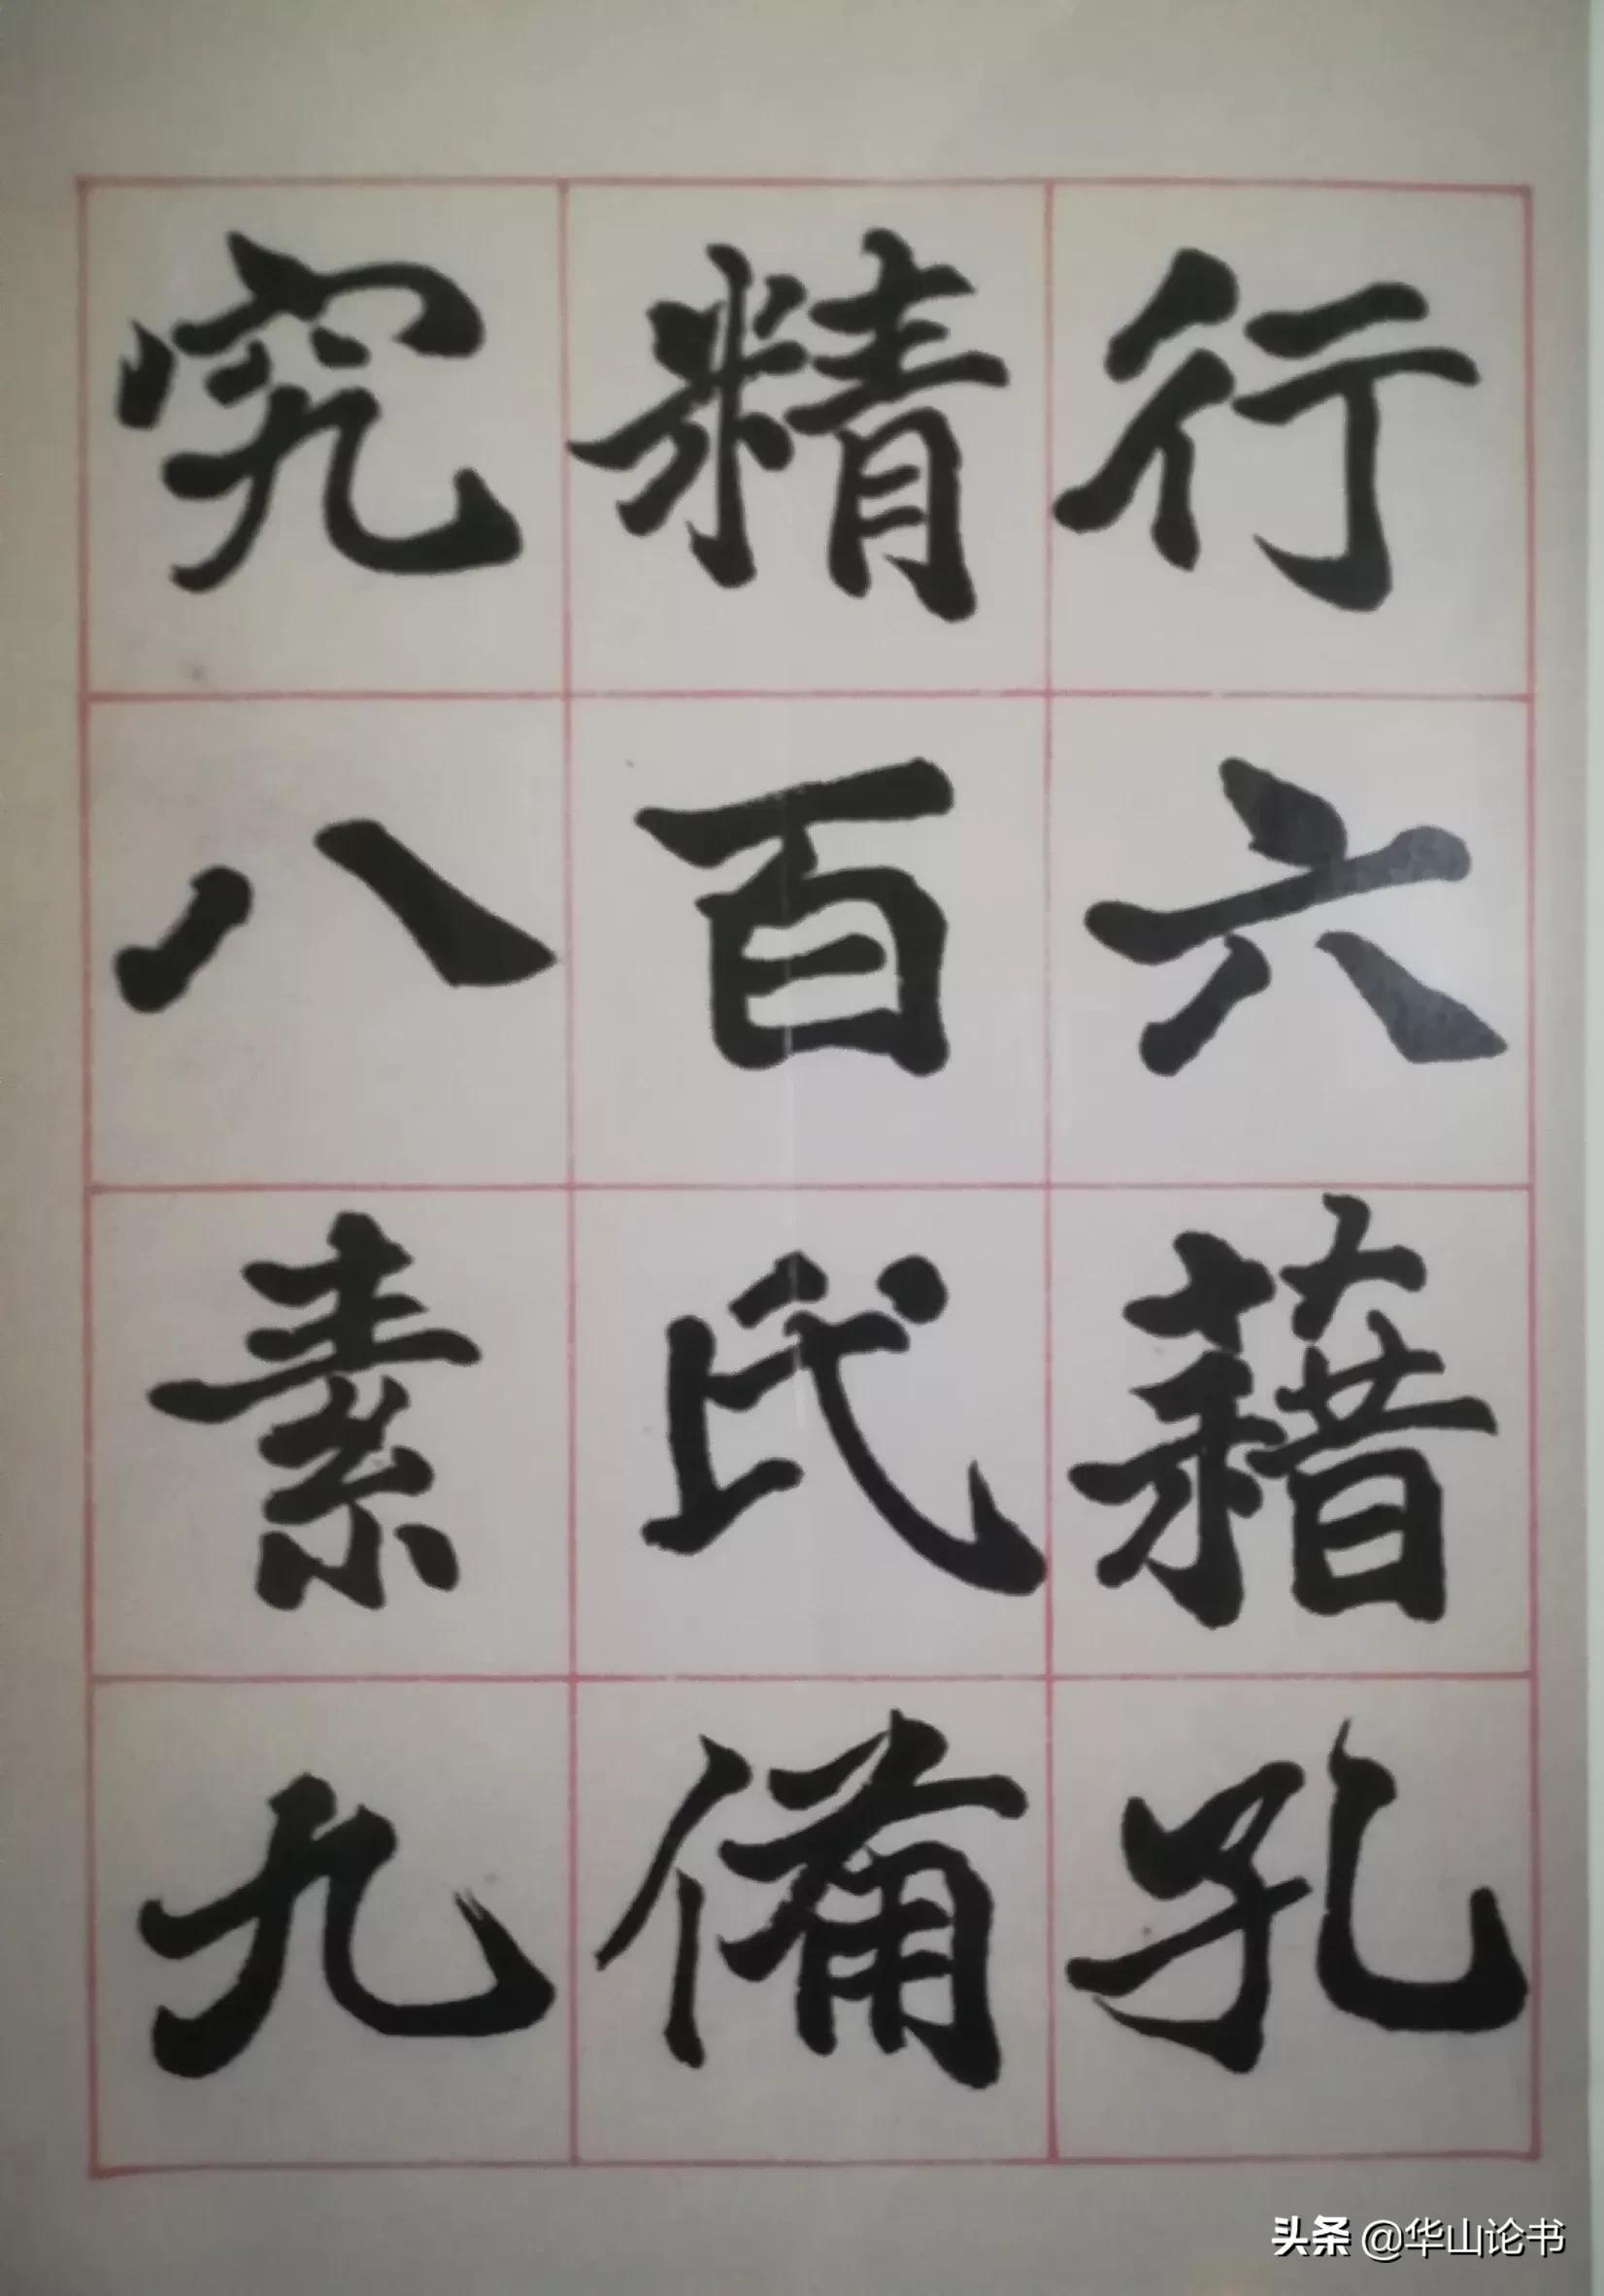 行六藉孔
精百氏備
究八素九
头条 @华山论书